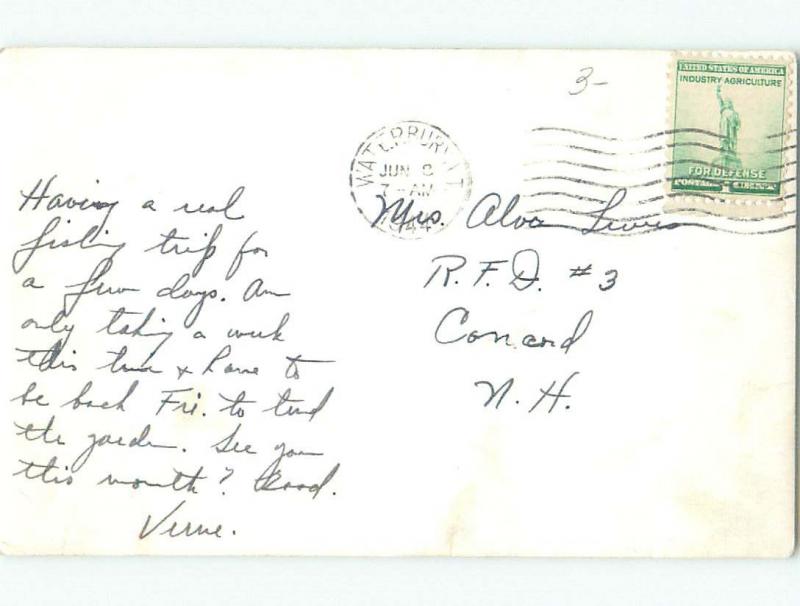 3-
UNITED STATES OF AMERICA
INDUSTRY AGRICULTURE
FOR DEFENSE
1
WATERBURY, VT.
JUN 8
7 - AM
1944
Having a real
fishing trip for
a few days. Am
only taking a week
this time & have to
be back Fri. to tend
the garden. See you
this month? Good.
Verne.
Mrs. Alva Lewis
R.F.D. #3
Concord
N. H.